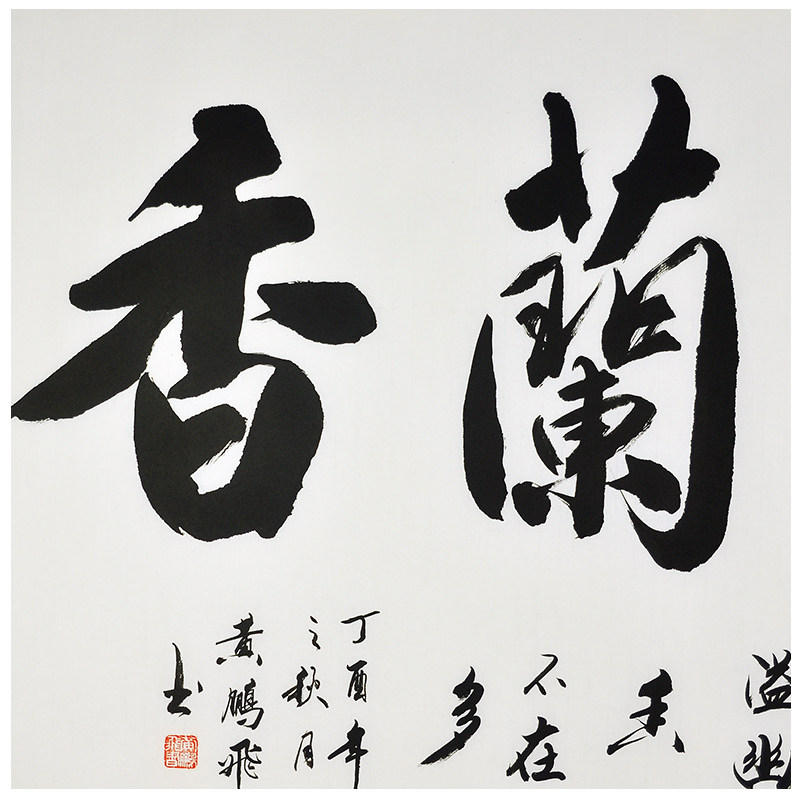 蘭香
溢幽
香
不在
多
丁酉年
之秋月
黄鵬飛
书